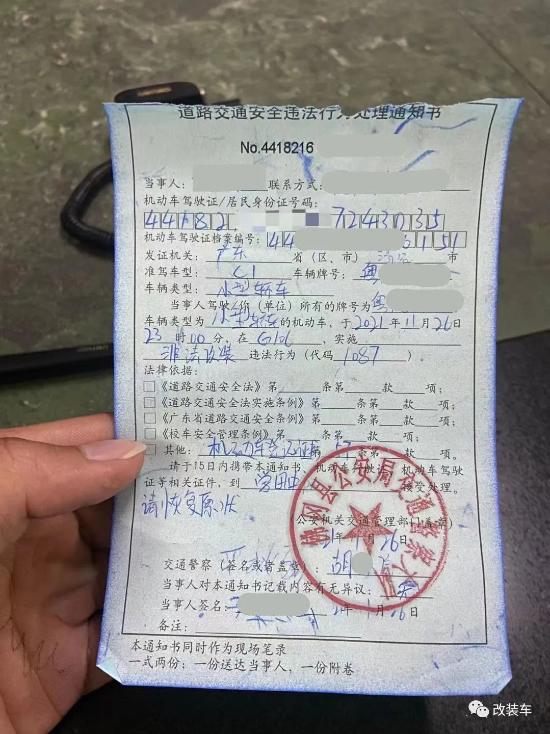 道路交通安全违法行为处理通知书
No.4418216
当事人: 联系方式:
机动车驾驶证/居民身份证号码:
44182 7243035
机动车驾驶证档案编号: 44 151
发证机关: 广东 省(区、市) 市
准驾车型: C1 车辆牌号: 粤
车辆类型: 小型轿车
当事人驾驶/你(单位)所有的牌号为粤
车辆类型为 小型轿车 的机动车,于2021年11月26日
23时00分,在G106,实施
非法改装 违法行为(代码 1087 )。
法律依据:
□《道路交通安全法》第 条第 款 项;
□《道路交通安全法实施条例》第 条第 款 项;
□《广东省道路交通安全条例》第 条第 款 项;
□《校车安全管理条例》第 条第 款 项;
□ 其他: 机动车登记证 第57条第 款 项。
请于15日内携带本通知书、机动车行驶证、机动车驾驶
证等相关证件,到 接受处理。
请恢复原状
公安机关交通管理部门(盖章)
21年 月26日
佛冈县公安局交通警察大队
交通警察(签名或者盖章): 胡
当事人对本通知书记载内容有无异议: 无
当事人签名: 21年11月26日
备注:
本通知书同时作为现场笔录
一式两份:一份送达当事人,一份附卷
改装车